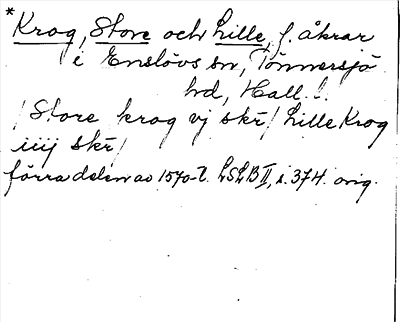 * Krog, Store och Lille, f. åkrar
i Enslövs sn, Tönnersjö
hd, Hall. l.
/ Store krog vj skr / Lille Krog
iiij skr /
förra delen av 1570-t. LSLB II, s. 374. orig.